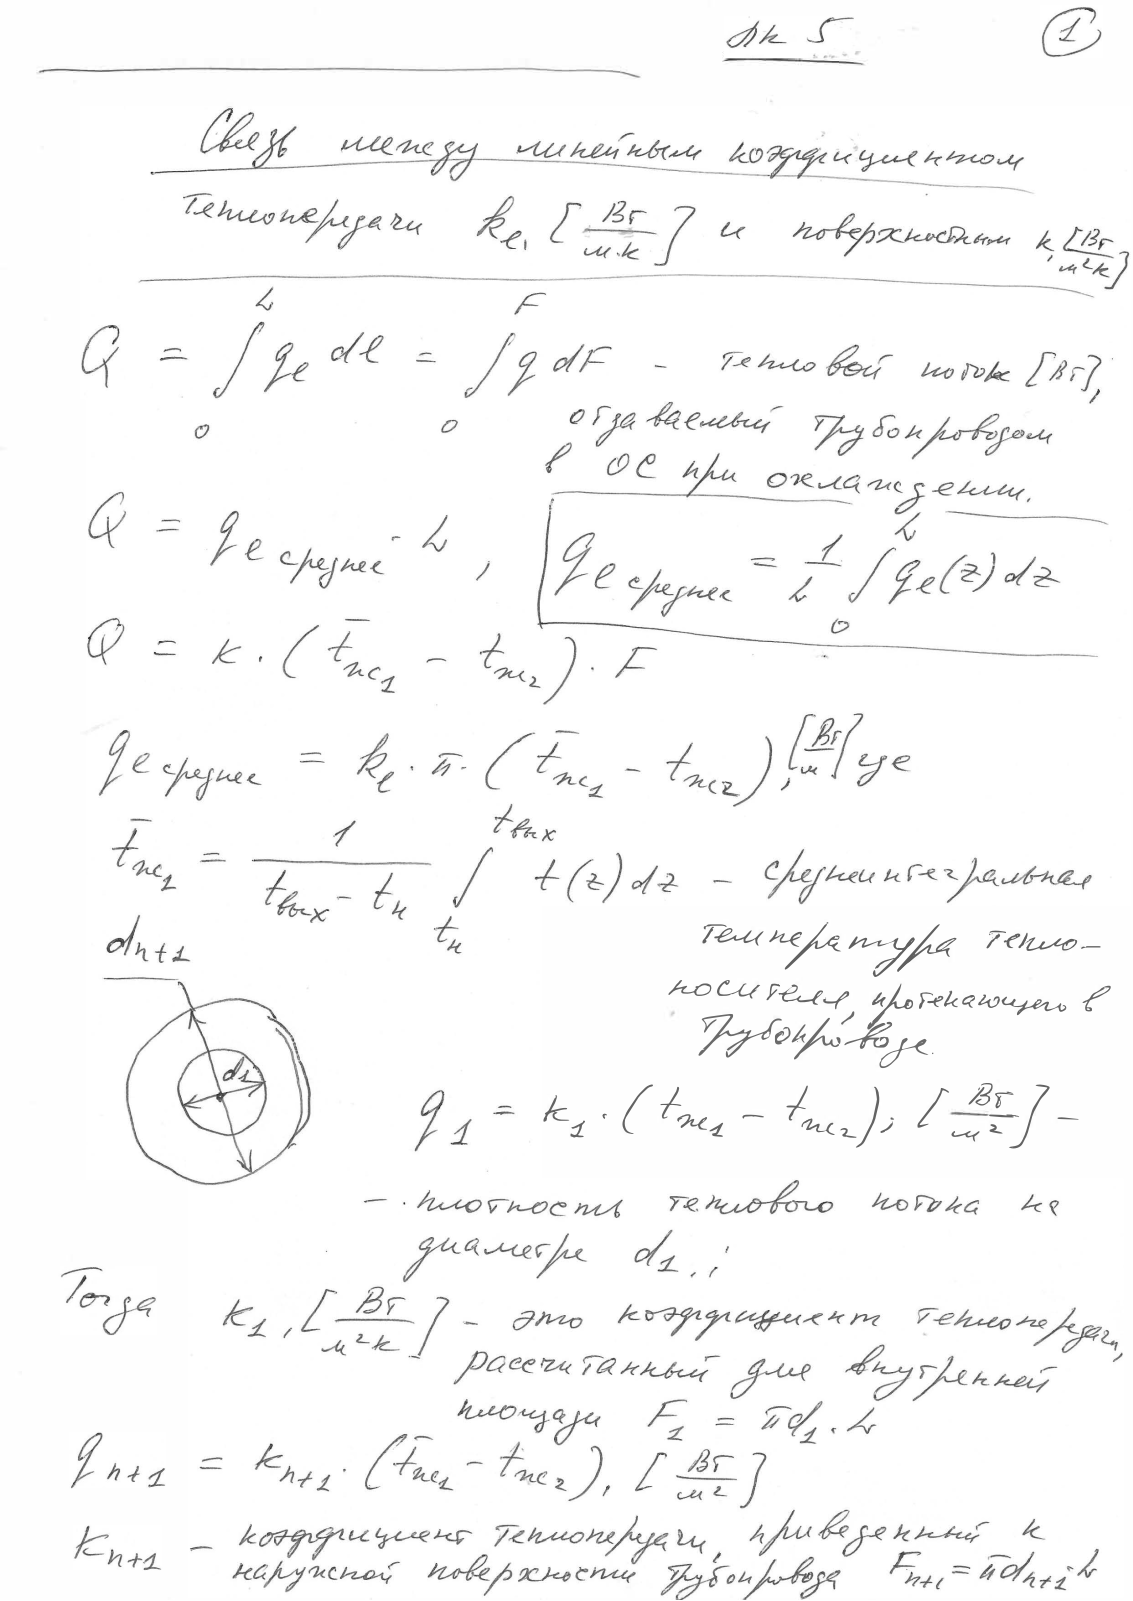 Лк 5
1
Связь между линейным коэффициентом
теплопередачи kℓ, [Вт/м·К] и поверхностным к, [Вт/м²К]
Q = ∫₀ᴸ qℓ dℓ = ∫₀ᶠ q dF – тепловой поток [Вт],
отдаваемый трубопроводом
в ОС при охлаждении.
Q = qℓ среднее · L, qℓ среднее = 1/L ∫₀ᴸ qℓ(z) dz
Q = к · (t̄ж1 – tж2) · F
qℓ среднее = kℓ · π · (t̄ж1 – tж2), [Вт/м] где
t̄ж1 = 1/(tвых – tн) ∫ tн tвых t(z) dz – среднеинтегральная
температура тепло-
носителя, протекающего в
трубопроводе.
dn+1
d1
q1 = к1 · (tж1 – tж2); [Вт/м²] –
– плотность теплового потока на
диаметре d1;
Тогда к1, [Вт/м²К] – это коэффициент теплопередачи,
рассчитанный для внутренней
площади F1 = πd1 · L
qn+1 = кn+1 · (t̄ж1 – tж2), [Вт/м²]
кn+1 – коэффициент теплопередачи, приведенный к
наружной поверхности трубопровода Fn+1 = πdn+1·L